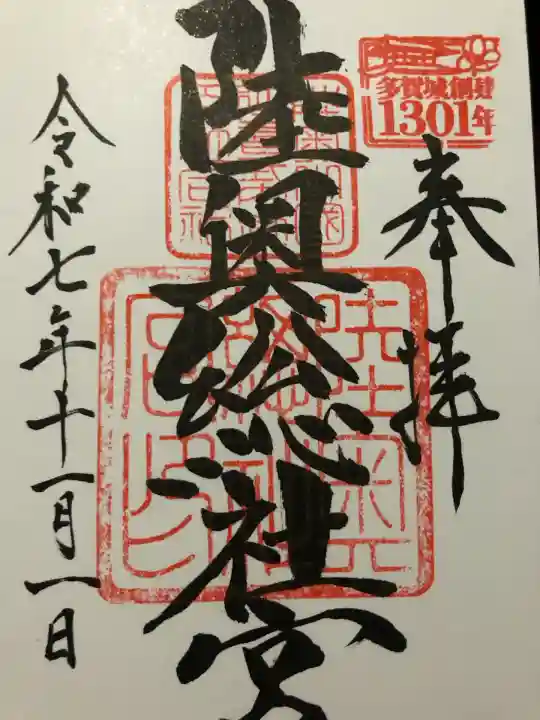 多賀城創建
1301年
奉拝
陸奥総社宮
令和七年十一月一日